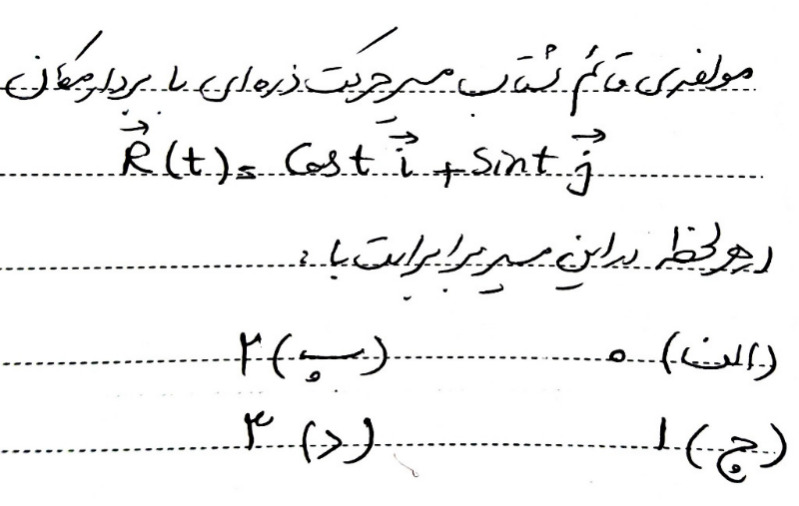 مولفه‌ی قائم شتاب مسیر حرکت ذره‌ای با بردار مکان
R⃗(t) = Cos t i⃗ + Sin t j⃗
در هر لحظه در این مسیر برابر است با :
الف) ۰ ب) ۲
ج) ۱ د) ۳